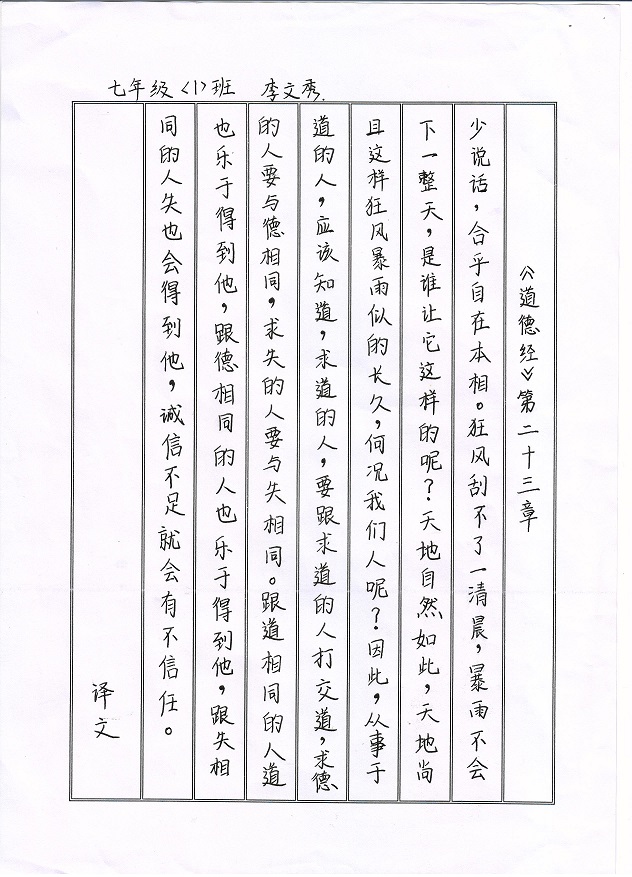 七年级〈1〉班 李文秀.
《道德经》第二十三章
少说话，合乎自在本相。狂风刮不了一清晨，暴雨不会
下一整天，是谁让它这样的呢？天地自然如此，天地尚
且这样狂风暴雨似的长久，何况我们人呢？因此，从事于
道的人，应该知道，求道的人，要跟求道的人打交道，求德
的人要与德相同，求失的人要与失相同。跟道相同的人道
也乐于得到他，跟德相同的人也乐于得到他，跟失相
同的人失也会得到他，诚信不足就会有不信任。
译文